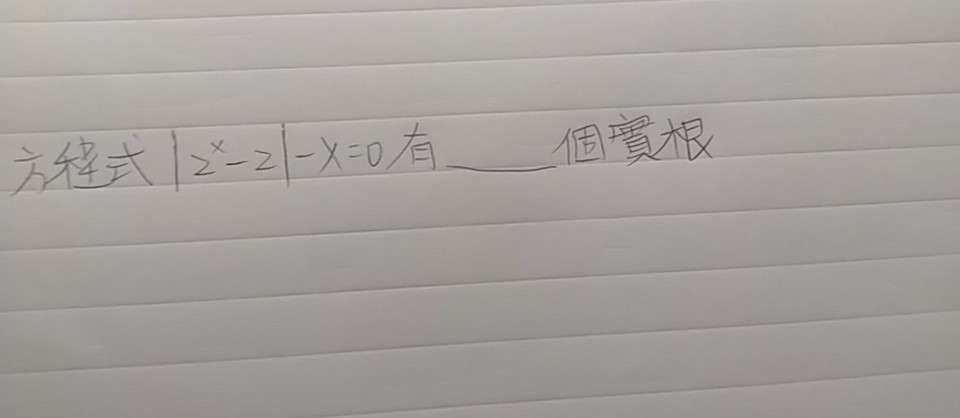 方程式 |2ˣ-2|-x=0 有____個實根